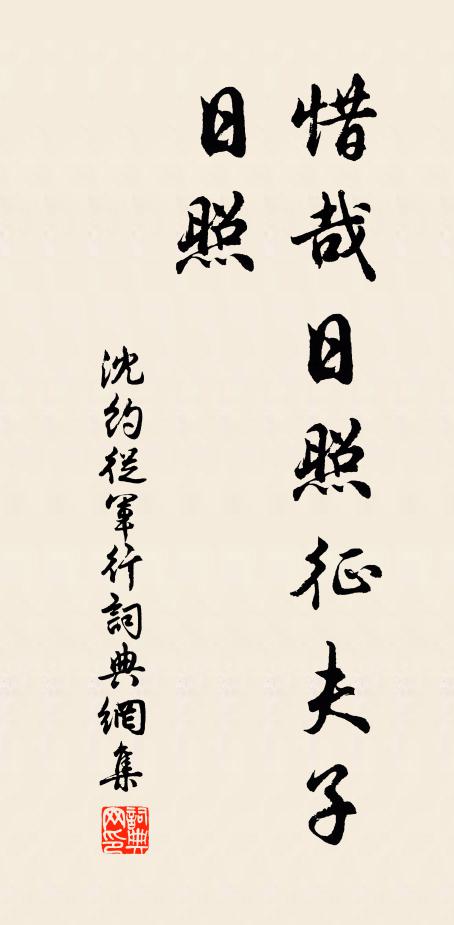 惜哉日照征夫子
日照
沈約從軍行詞典網集
詞典
网印